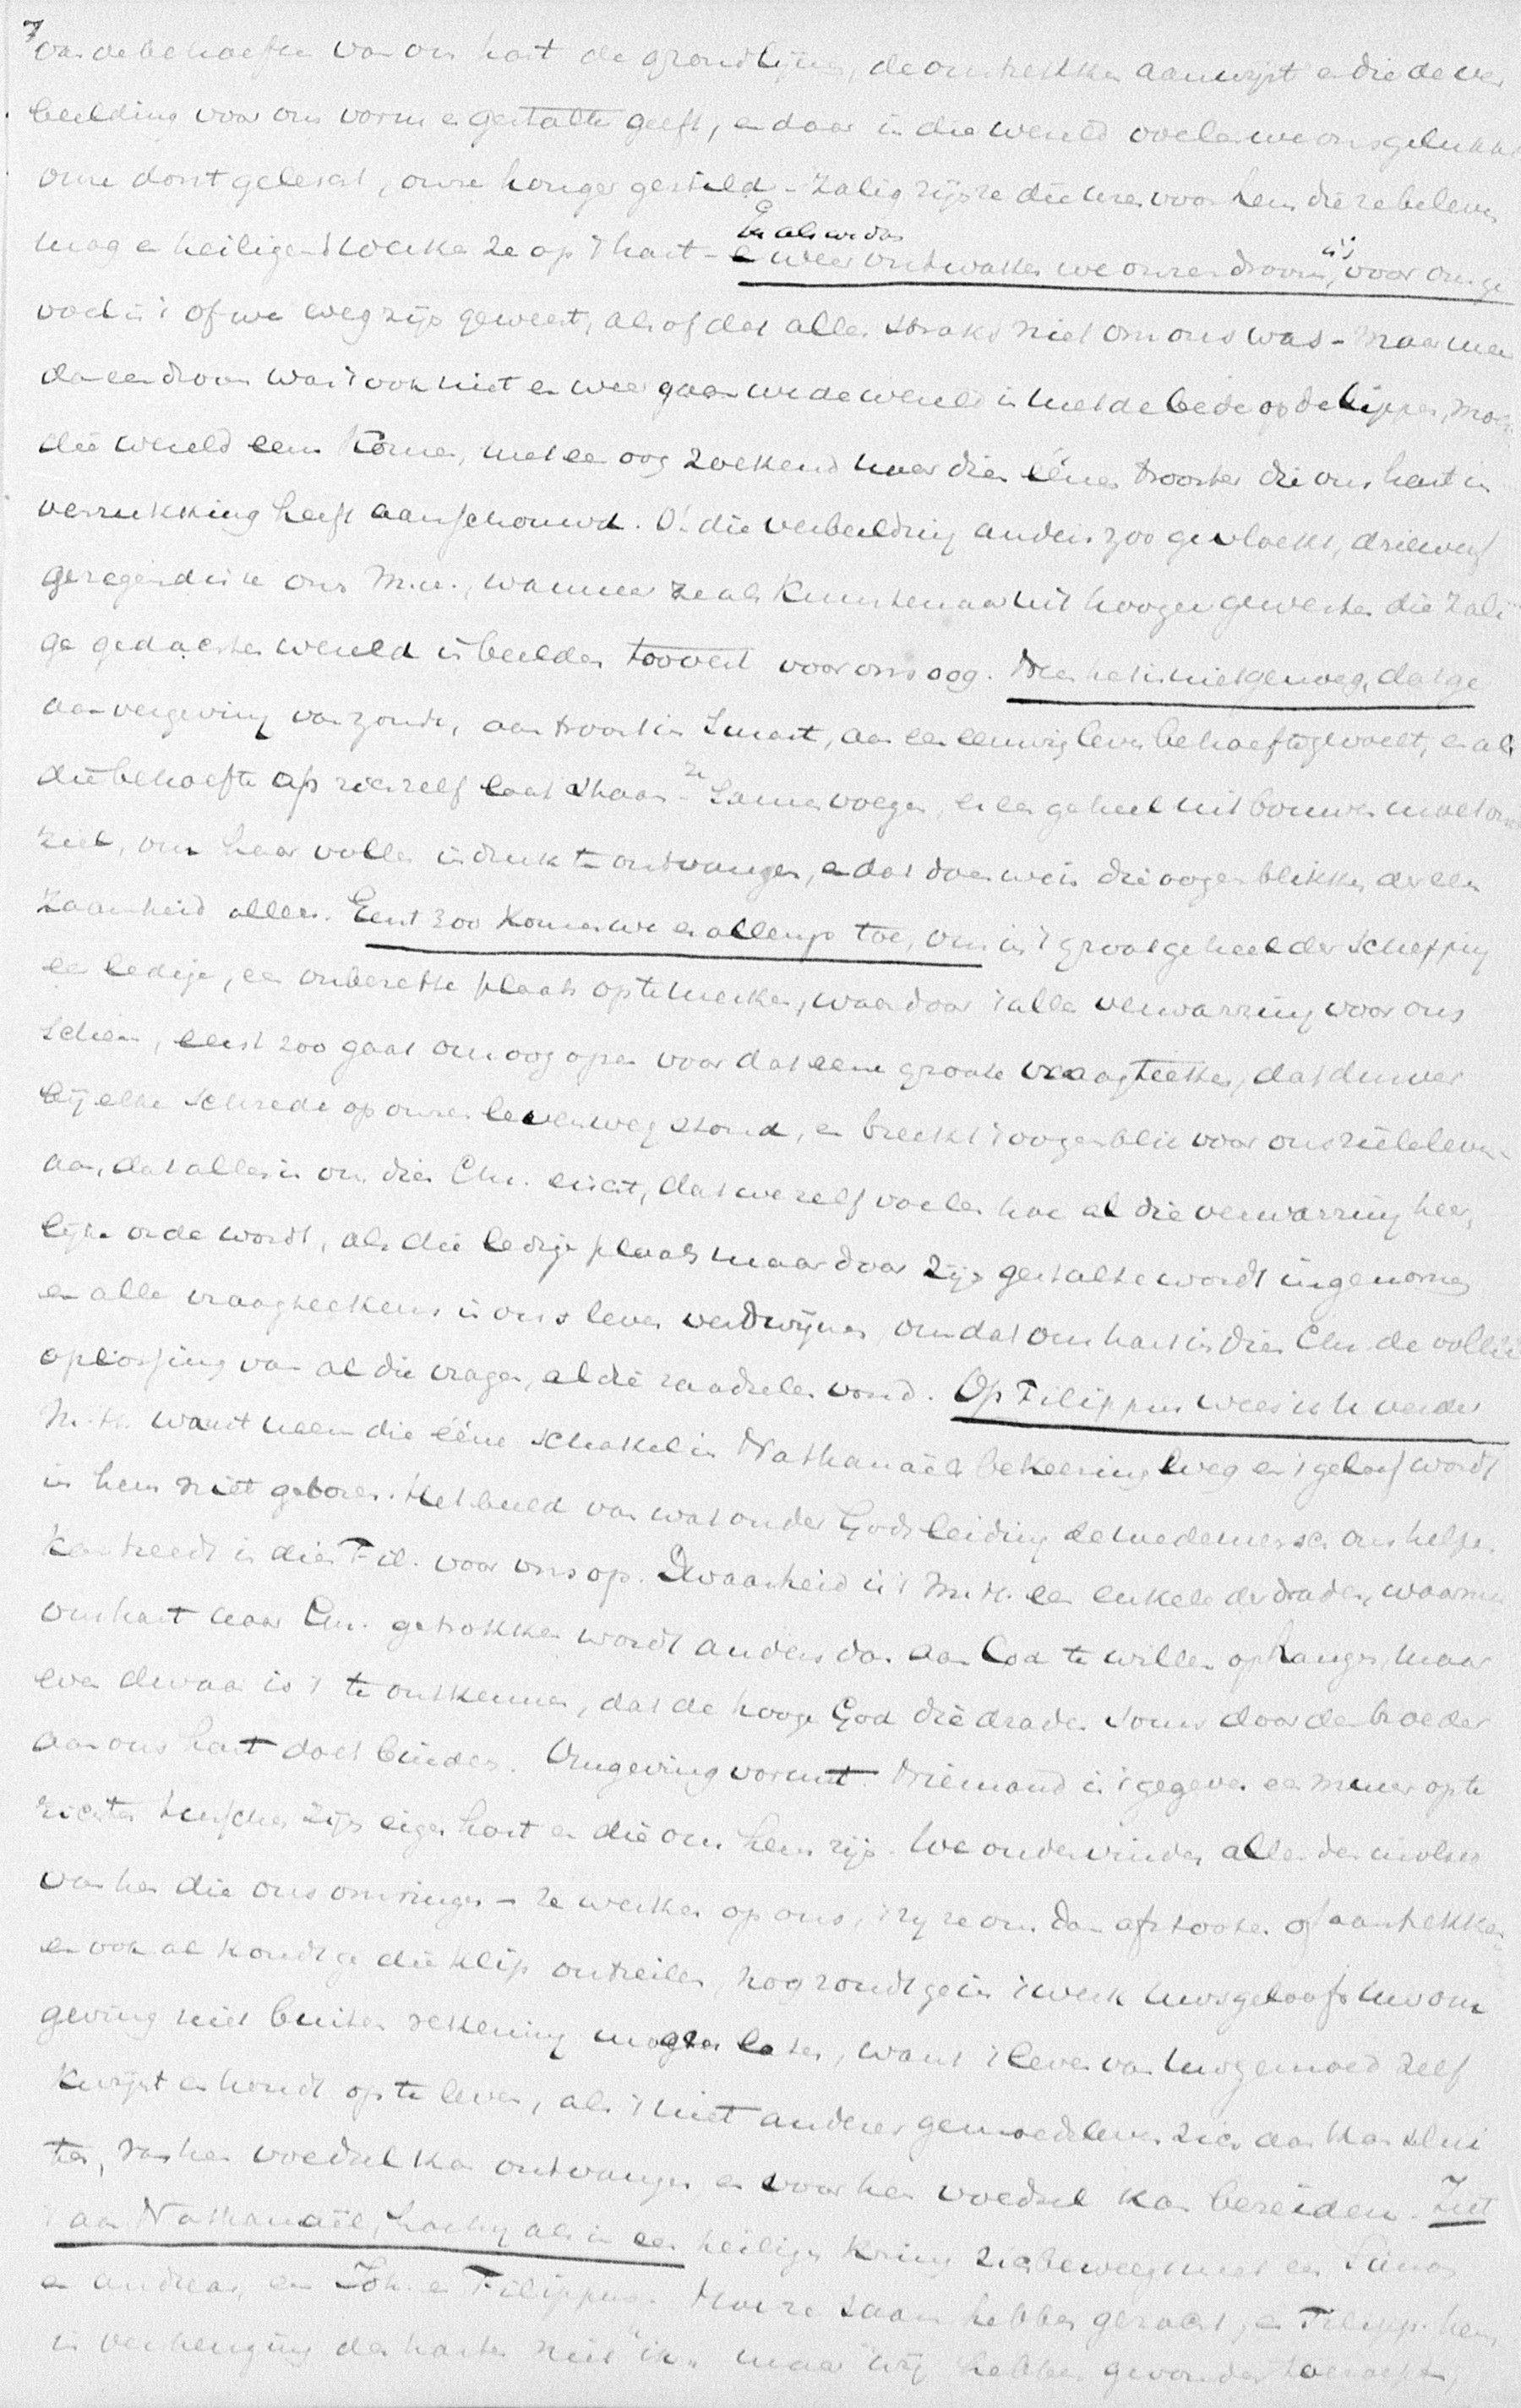 7
van de behoeften van ons hart de grondlijnen, de omtrekken aanwijst en die de ver
beelding voor ons vorm en gestalte geeft, en daar in die wereld voelen we ons gelukkig
onze dorst gelescht, onze honger gestild - Zalig zijn ze die uren voor hem die ze beleven
En als we dan
mag en heiligend werken ze op 't hart - en weer ontwaken we onzen droom, is 't voor ons ge
voel is 't of we weg zijn geweest, alsof dat alles straks niet om ons was - maar meer
dan een droom was 't ook niet en weer gaan we de wereld in met de bede op de lippen, mocht
die wereld eens komen, met een oog zoekend naar dien éénen trooster die ons hart in
verrukking heeft aanschouwd. O! die verbeelding anders zoo gevloekt, driewerf
gezegend is ze ons M.H., wanneer ze als kunstenaar uit hooger gewesten die zali
ge gedachten wereld in beelden toovert voor ons oog. Neen het is niet genoeg, dat ge
aan vergeving van zonde, aan troost in smart, aan een eeuwig leven behoefte gevoelt, en als
die behoefte op zich zelf laat staan - ze samenvoegen, er een geheel uit bouwen moet onze
ziel, om haar vollen indruk te ontvangen, en dat doen we in die oogenblikken der een
zaamheid alleen. Eerst zoo komen we er allengs toe, om in 't groot geheel der schepping
een ledige, een onbezette plaats op te merken, waardoor 't alles verwarring voor ons
scheen, eerst zoo gaat ons oog open voor dat eene groote vraagteeken, dat
bij elke schrede op onzen levensweg stond, en breekt 't oogenblik voor ons zieleleven
aan, dat alles in ons dien Chr. eischt, dat we zelf voelen hoe al die verwarring heer,
lijke orde wordt, als die ledige plaats maar door zijn gestalte wordt ingenomen
en alle vraagteekens in ons leven verdwijnen, omdat ons hart in dien Chr. de volle
oplossing van al die vragen, al die raadselen vond. Op Filippus wees ik u verder
M.H. want neem die ééne schakel in Nathanaëls bekeering weg en 't geloof wordt
in hem niet geboren. Het beeld van wat onder Gods leiding de medemensch ons helpen
kan treedt in dien Fil. voor ons op. Dwaasheid is 't M.H. een enkele der draden, waarmee
ons hart naar Chr. getrokken wordt anders dan aan God te willen ophangen, maar
even dwaas is 't te ontkennen, dat de hooge God die draden soms door den broeder
aan ons hart doet binden. Omgeving vormt. Niemand is 't gegeven een muur op te
richten tusschen zijn eigen hart en die om hem zijn. We ondervinden allen den invloed
van hen die ons omringen - ze werken op ons, 't zij ze ons dan afstooten of aantrekken
en ook al kondt ge die klip ontzeilen, nog zoudt ge in 't werk uws geloofs uw om
geving niet buiten rekening mogen laten, want 't leven van uw gemoed zelf
kwijnt en houdt op te leven, als 't niet aan der gemoedsleven zich aan kan slui
ten, van hen voedsel kan ontvangen en voor hen voedsel kan bereiden. Ziet
't aan Nathanaël, hoe hij als in een heiligen kring zich beweegt met een Simon
en Andreas, een Joh. en Filippus. Hoe ze saam hebben gezocht, en Filipp. hem
in verheuging des harten niet "ik" maar "wij hebben gevonden" toeroept,